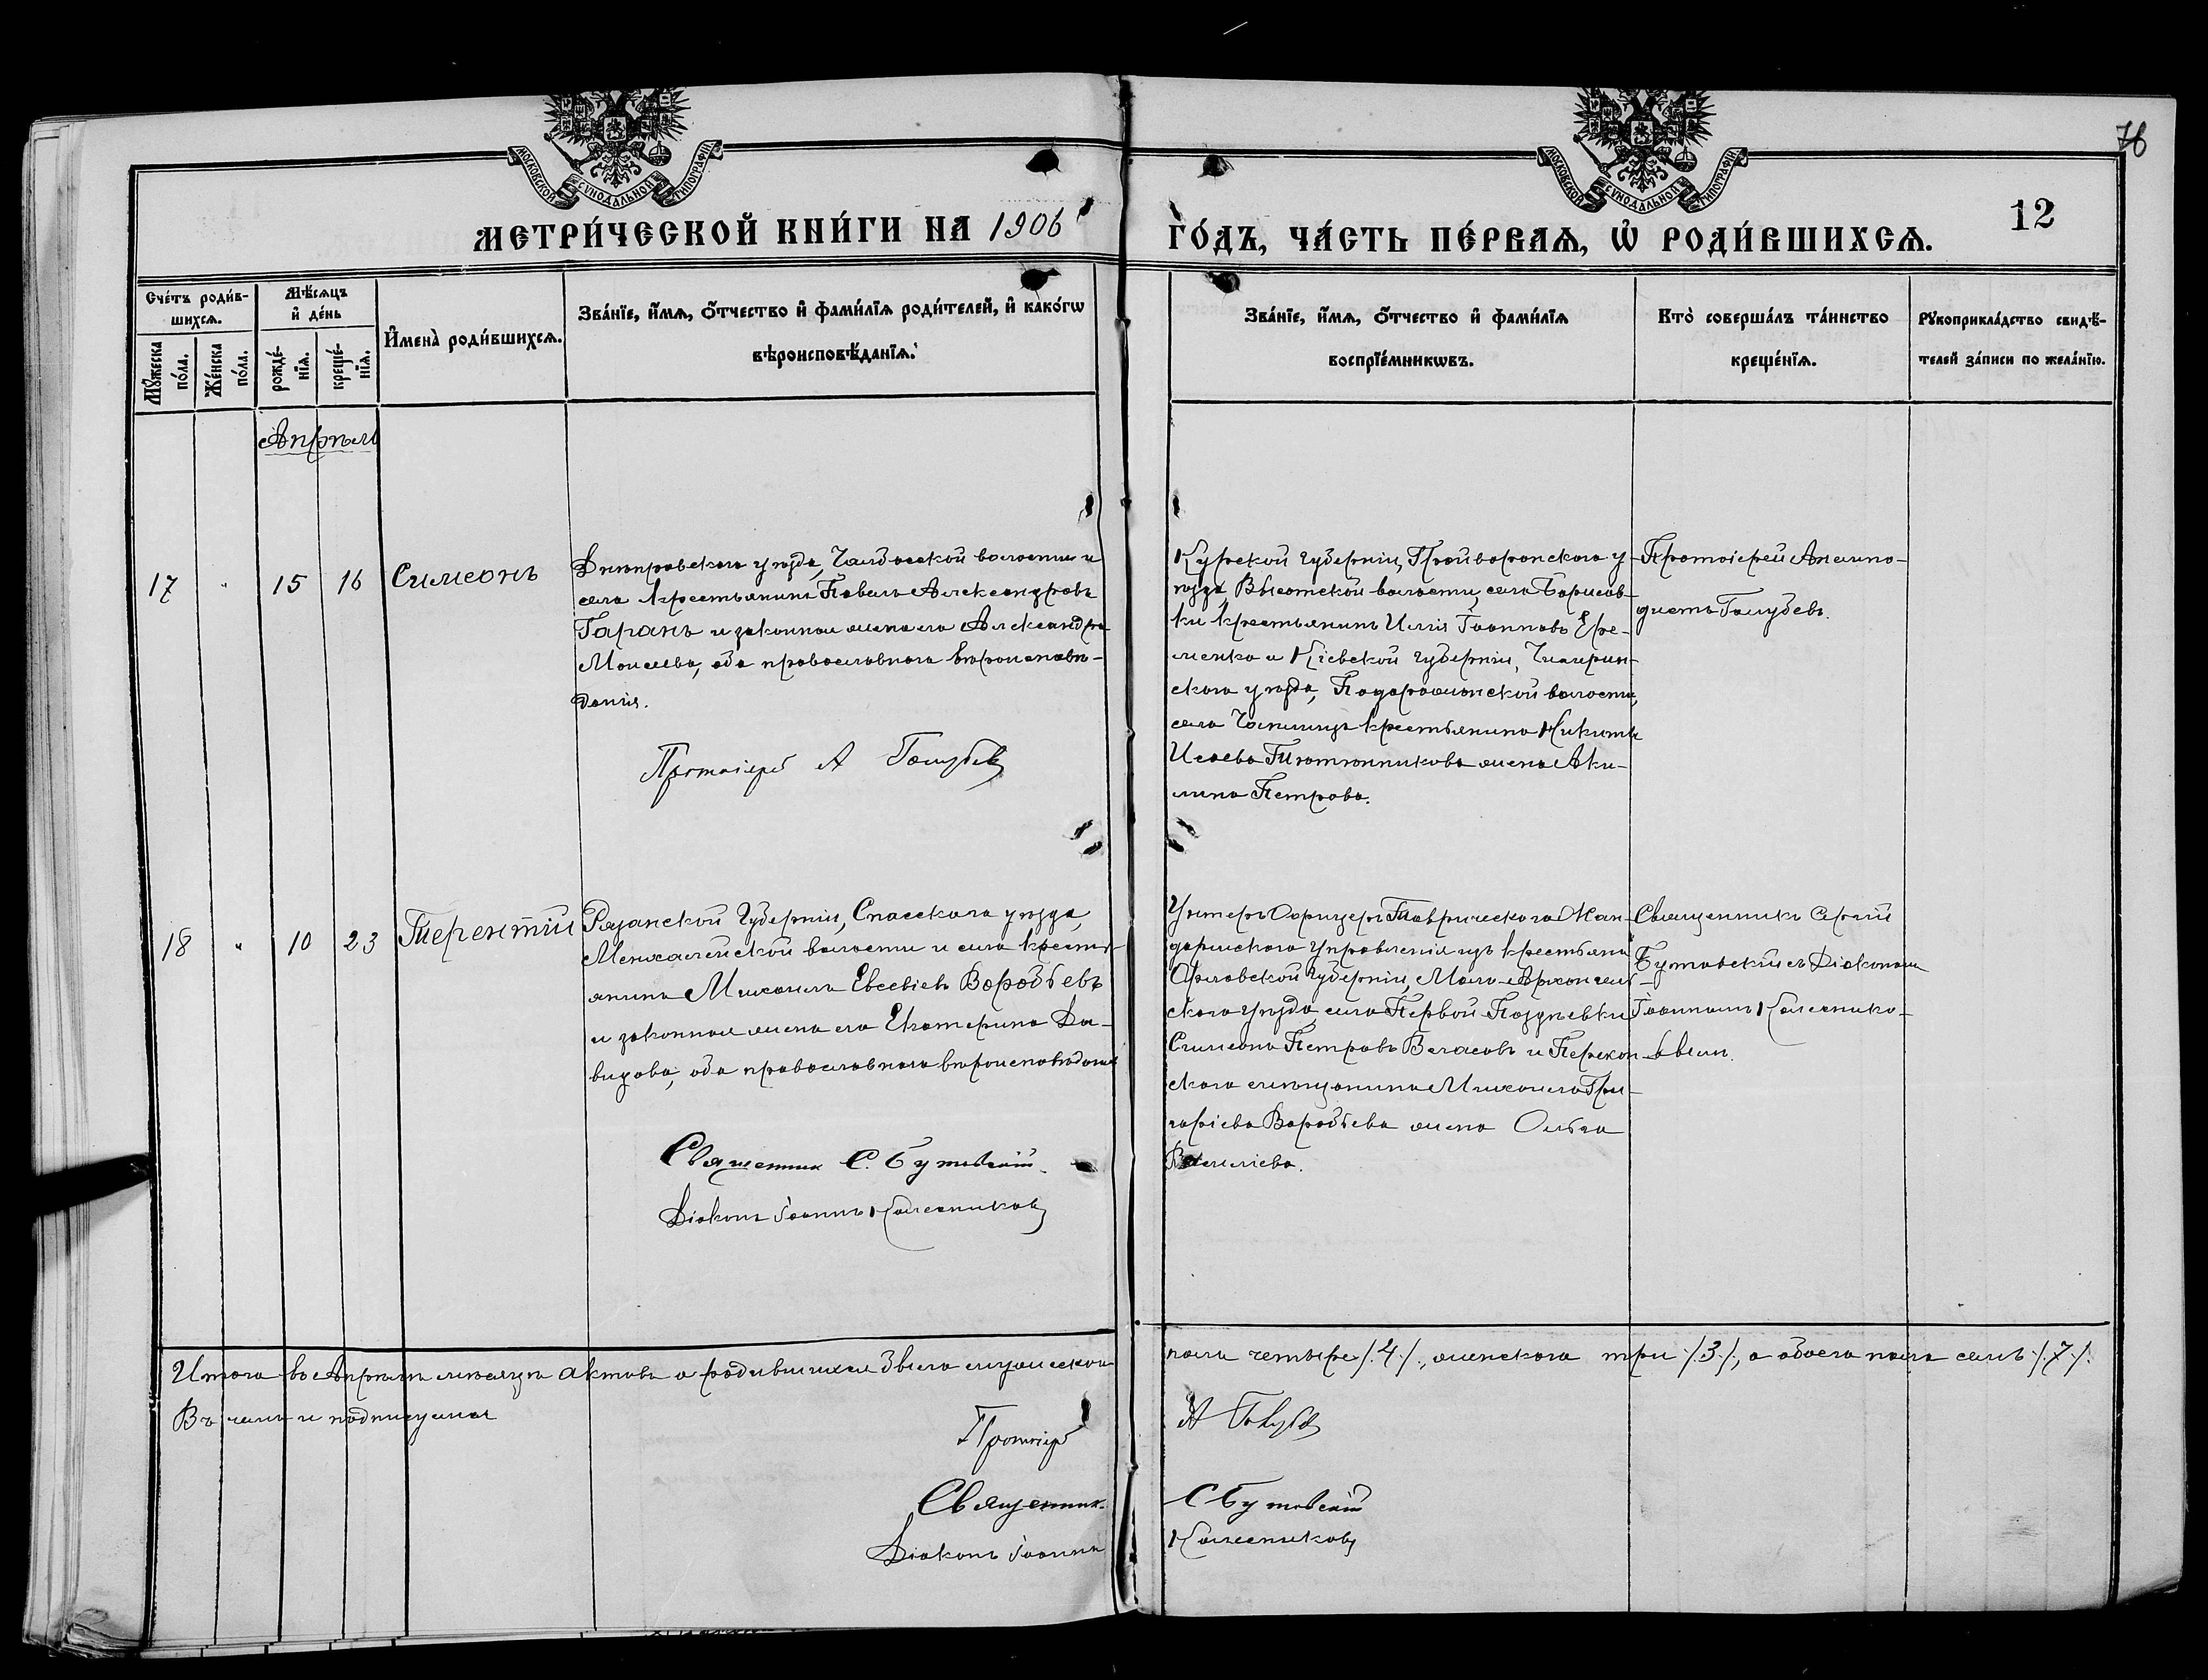 76
МОСКОВСКОЙ СѴНОДАЛЬНОЙ ТИПОГРАФІИ
МОСКОВСКОЙ СѴНОДАЛЬНОЙ ТИПОГРАФІИ
МЕТРИ́ЧЕСКОЙ КНИ́ГИ НА 1906
ГО́ДЪ, ЧА́СТЬ ПЕ́РВАѦ, Ѡ҆ РОДИ́ВШИХСѦ.
12
Сче́тъ роди́в-
шихсѧ.
Мꙋ́жеска по́ла.
Же́нска по́ла.
Мѣ́сѧцъ и҆ де́нь
рожде́-нїѧ.
креще́-нїѧ.
И҆мена̀ роди́вшихсѧ.
Зва́нїе, и҆́мѧ, ѻ҆́тчество и҆ фами́лїѧ роди́телей, и҆ како́гѡ
вѣроисповѣ́данїѧ.
Зва́нїе, и҆́мѧ, ѻ҆́тчество и҆ фами́лїѧ
воспрїе́мникѡвъ.
Кто̀ соверша́лъ та́инство
креще́нїѧ.
Рꙋкоприкла́дство свидѣ́-
телей за́писи по жела́нїю.
Апрѣль
17 " 15 16 Симеонъ
Днѣпровскаго уѣзда, Чалбасской волости и
села крестьянинъ Павелъ Александровъ
Гаранъ и законная жена его Александра
Моисеева, оба православнаго вѣроисповѣ-
данія.
Протоіерей А Голубевъ
Курской губерніи, Грайворонскаго у-
ѣзда, Высотской волости, села Борисов-
ки крестьянинъ Илія Іоанновъ Ере-
менко и Кіевской губерніи, Чигирин-
скаго уѣзда, Подорожнской волости,
села крестьянина Никиты
Исаева Тютюнникова жена Аки-
лина Петрова.
Протоіерей Анемпо-
дистъ Голубевъ.
18 " 10 23 Терентій
Рязанской губерніи, Спасскаго уѣзда,
волости и села кресть-
янинъ Михаилъ Евсевіевъ Воробьевъ
и законная жена его Екатерина Да-
видова, оба православнаго вѣроисповѣданія
Священникъ С. Бутовскій.
Діаконъ Іоаннъ Колесниковъ
Унтеръ Офицеръ Таврическаго Жан-
дармскаго Управленія изъ крестьянъ
Орловской губерніи, Мало-Архангель-
скаго уѣзда, села Первой Поздневки
Симеонъ Петровъ Власовъ и Перекоп-
скаго мѣщанина Михаила Гри-
горіева Воробьева жена Ольга
Василіева.
Священникъ Сергій
Бутовскій съ Діакономъ
Іоанномъ Колеснико-
вымъ.
Итого въ Апрѣлѣ мѣсяцѣ актовъ о родившихся было мужеского
пола четыре /.4./, женскаго три /.3./, а обоего пола семь /.7./.
Въ чемъ и подписуемся
Протоіерей А Голубевъ
Священникъ С Бутовскій
Діаконъ Іоаннъ Колесниковъ